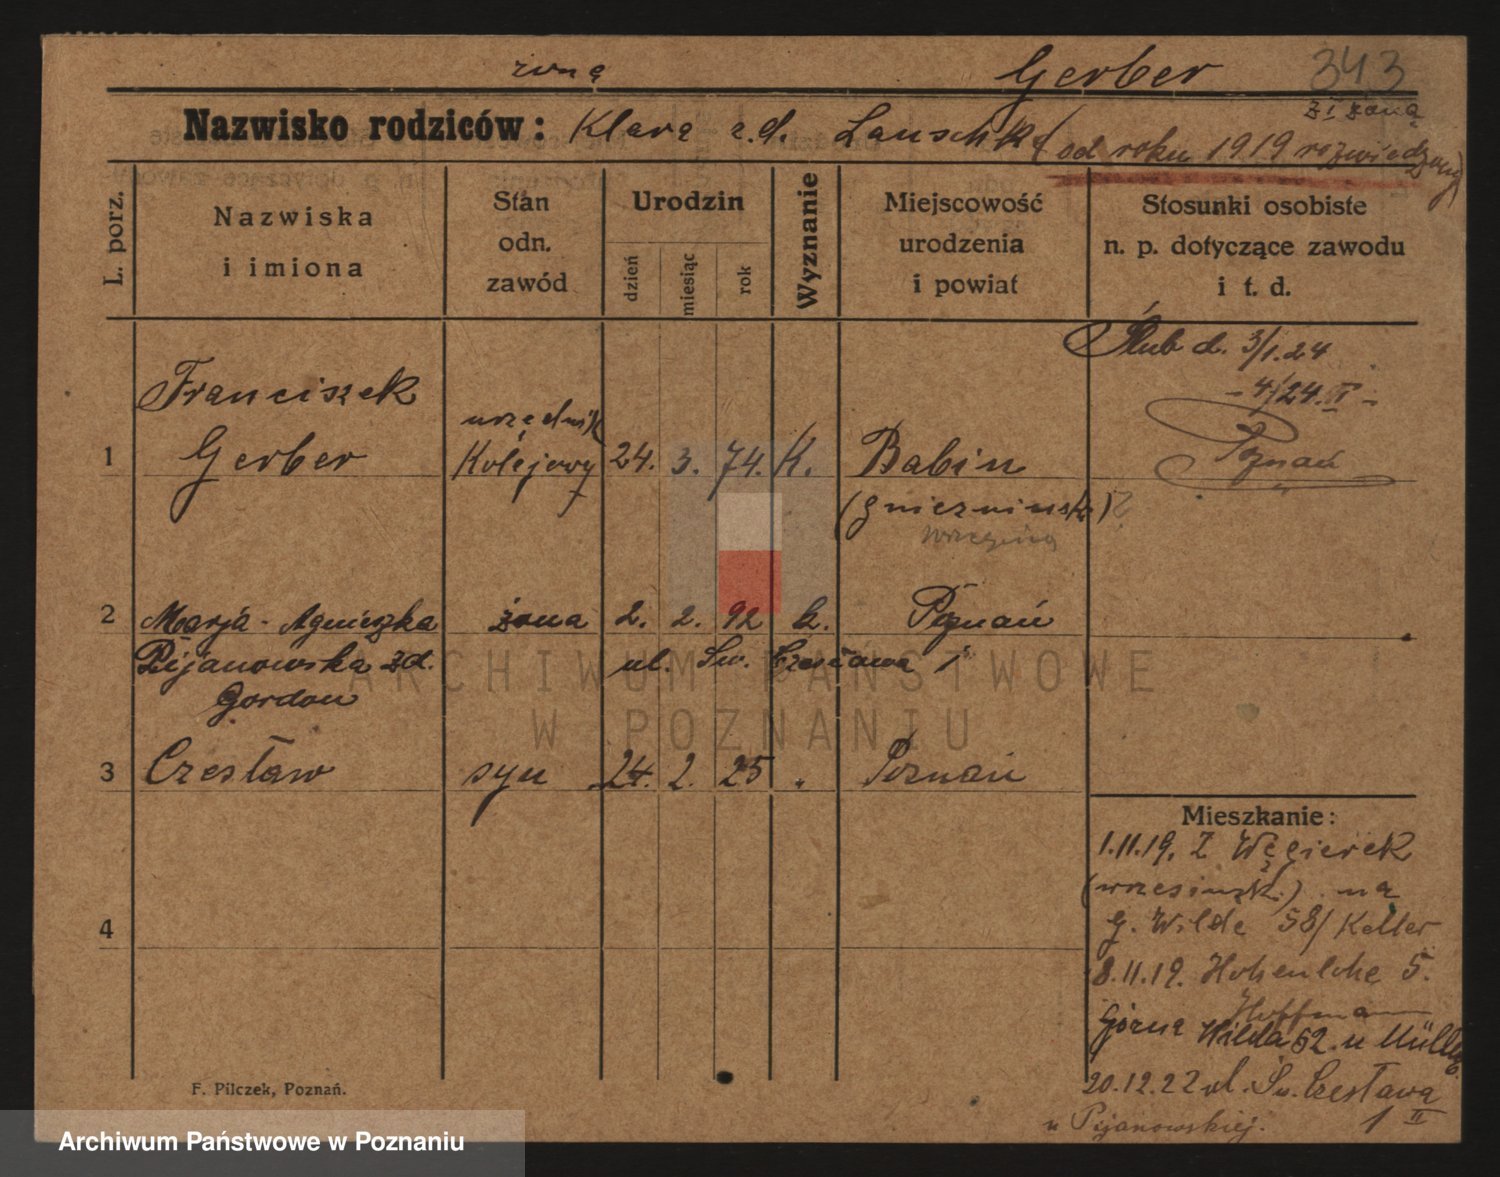 żoną
Gerber 343
Nazwisko rodziców: Klarą z.d. Lauschke (od roku 1919 rozwiedzony)
z I żoną
L. porz.
Nazwiska
i imiona
Stan
odn.
zawód
Urodzin
dzień
miesiąc
rok
Wyznanie
Miejscowość
urodzenia
i powiat
Stosunki osobiste
n. p. dotyczące zawodu
i t. d.
Ślub d. 3/1.24
- 4/24. II -
Poznań
1 Franciszek
Gerber
urzędnik
Kolejowy
24. 3. 74. K.
Babin
(gnieznińsk) ?
2 Marja - Agnieszka żona 2. 2. 92 k. Poznań
Pijanowska zd. ul. Św. Czesława 1
Gordon
3 Czesław syn 24. 2. 25 . Poznań
4
Mieszkanie:
1.11.19. Z Węgierek
(wrzesińsk.) na
G. Wilde 58/ Keller
8.11.19. Hohenlohe 5.
Hoffmann
Górna Wilda 52. u Müller
20.12.22 ul. Św. Czesława
1 II
u Pijanowskiej.
F. Pilczek, Poznań.
ARCHIWUM PAŃSTWOWE
W POZNANIU
Archiwum Państwowe w Poznaniu